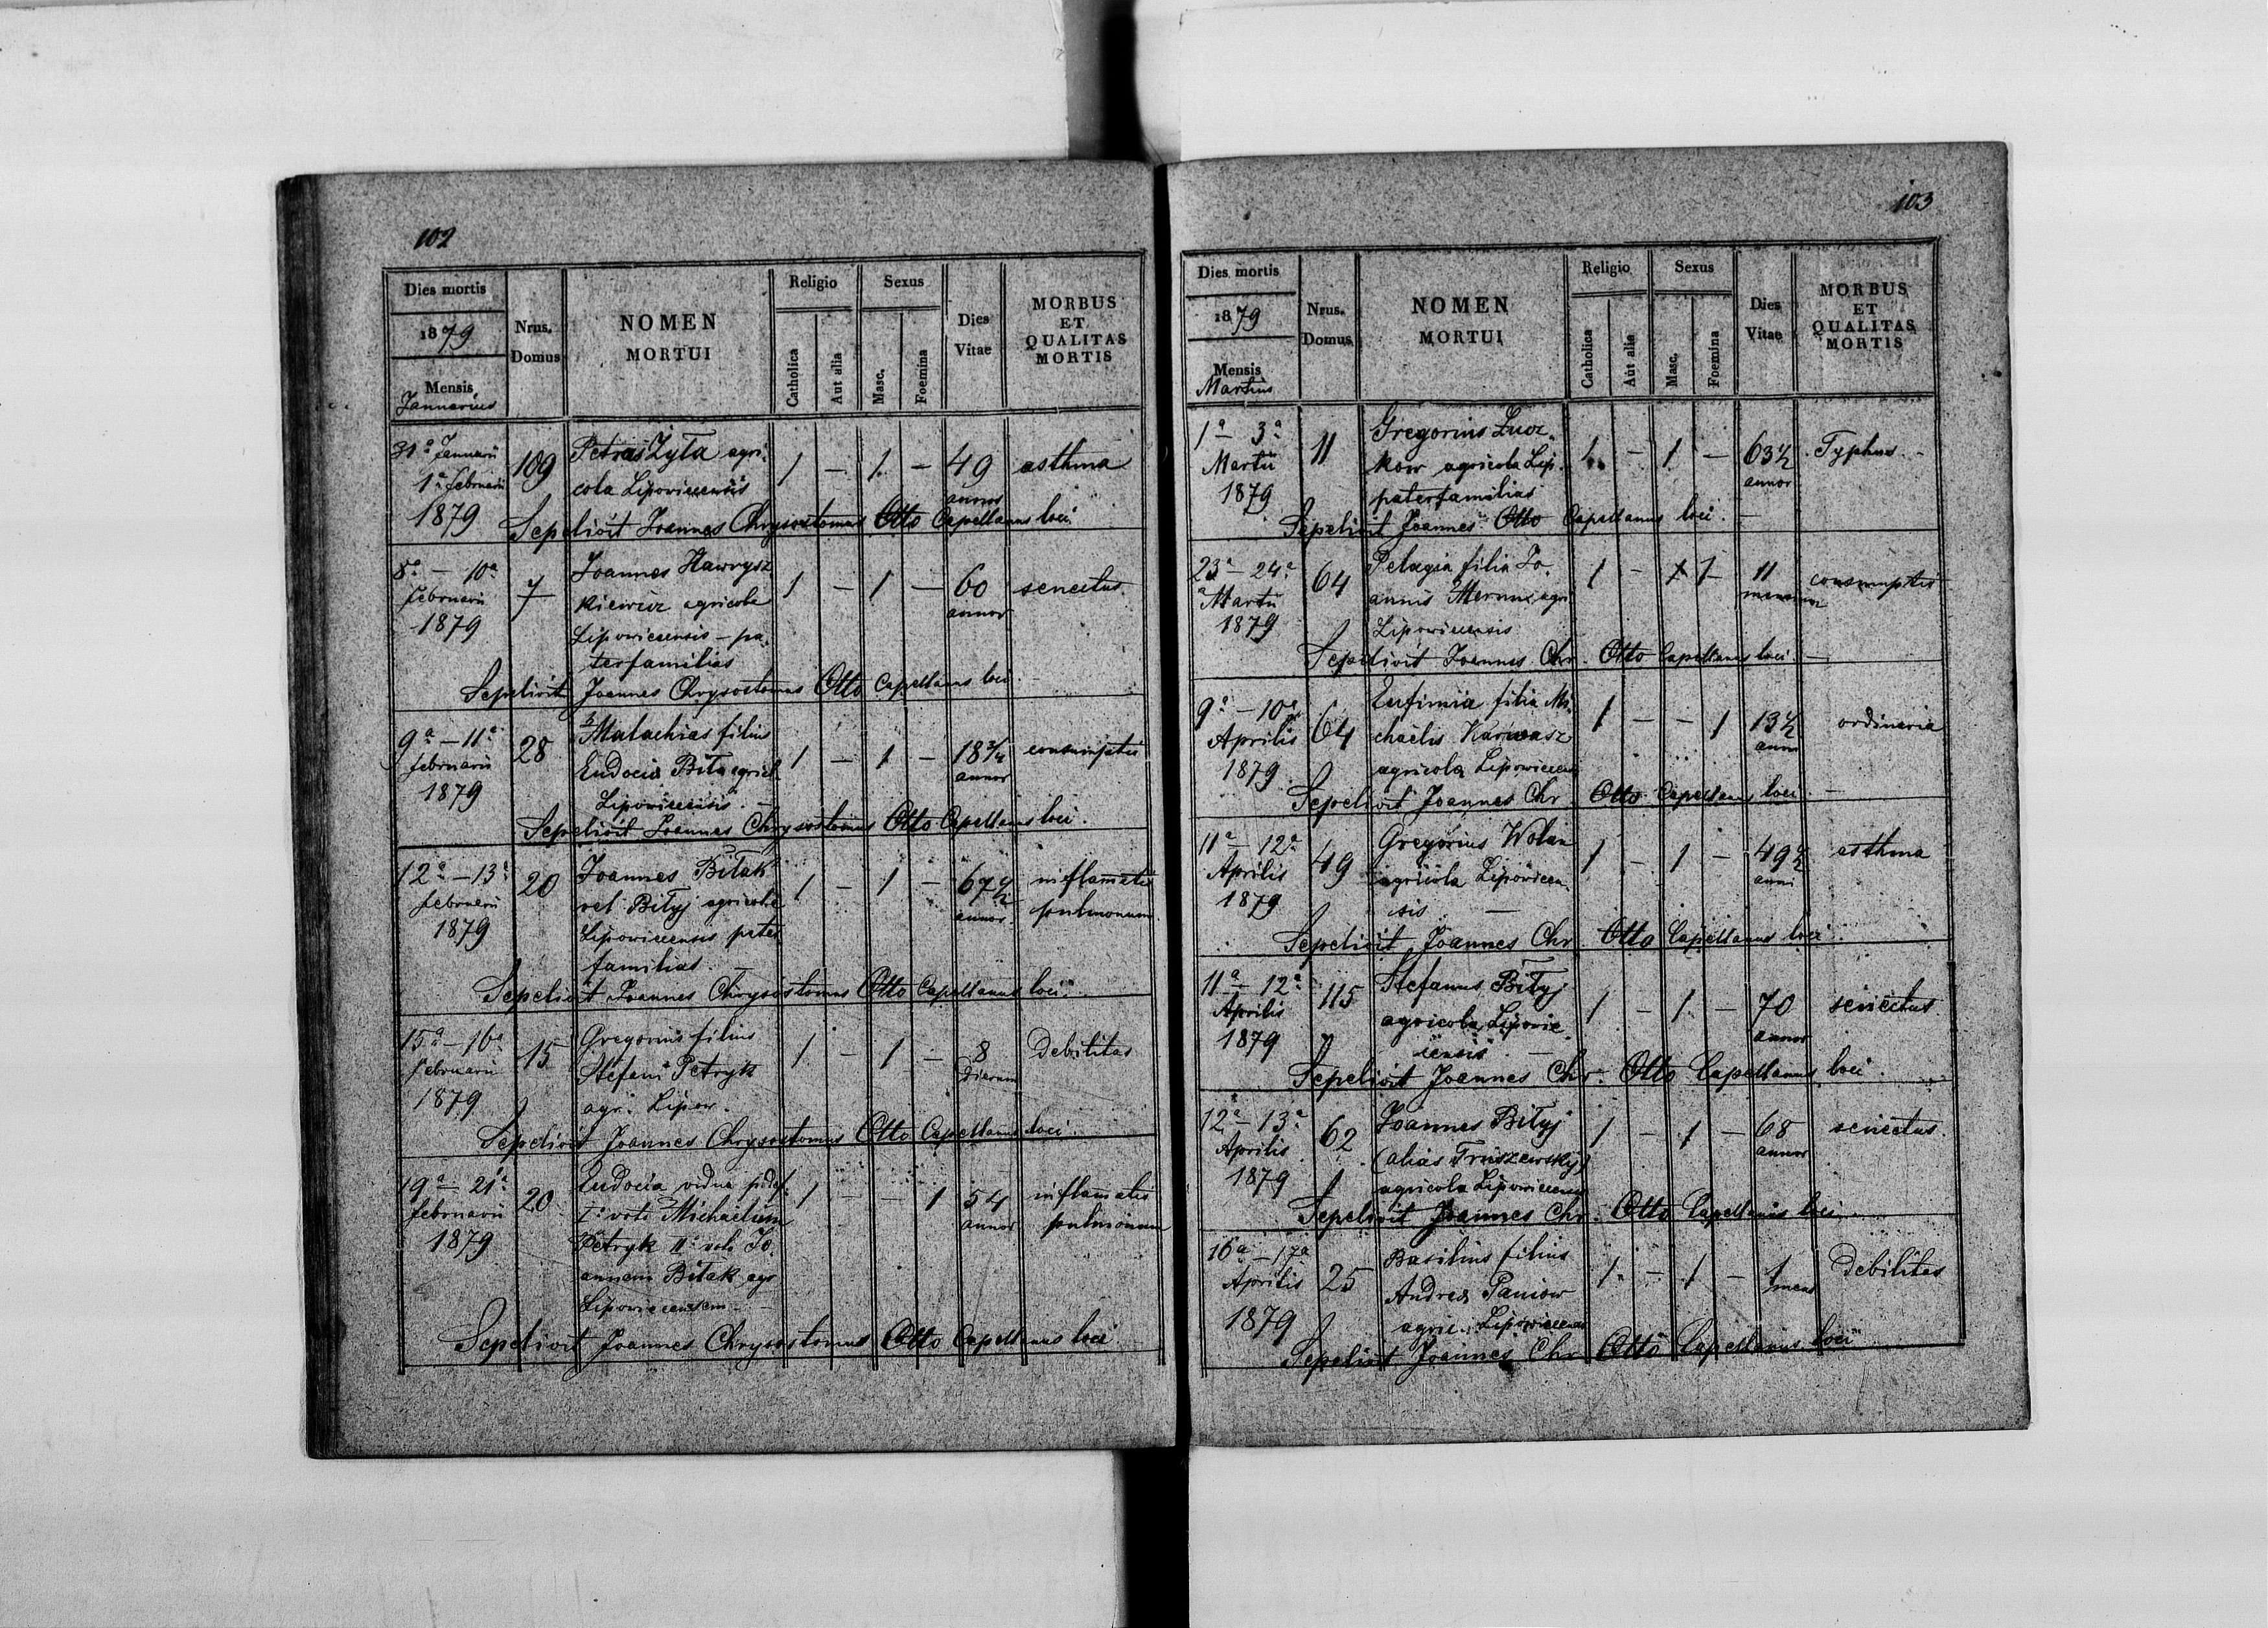 102
Dies mortis
1879
Mensis
Januarius
Nrus. Domus
NOMEN MORTUI
Religio
Catholica
Aut alia
Sexus
Masc.
Foemina
Dies Vitae
MORBUS ET QUALITAS MORTIS
31a Januarii 109 Petras Zyta agri- 1 — 1 — 49 asthma
1a februarii cola Lipoviecensis annor
1879 Sepelivit Joannes Chrysostomus Otto Capellanus loci
8a — 10a 7 Joannes Hawrysz 1 — 1 — 60 senectus
februarii kiewicz agricola annor
1879 Lipowiecensis — pa-
terfamilias
Sepelivit Joannes Chrysostomus Otto Capellanus loci.
9a — 11a 28 Malachias filius 1 — 1 — 18 3/4
februarii Eudocia agric annor
1879 Lipowiecensis. —
Sepelivit Joannes Chrysostomus Otto Capellanus loci.
12a — 13a 20 Joannes Bitak 1 — 1 — 67 1/2
februarii vel Bityj agricola annor. pulmonum
1879 Lipowiecensis pater
familias. —
Sepelivit Joannes Chrysostomus Otto Capellanus loci.
15a — 16a 15 Gregorius filius 1 — 1 — 8 Debilitas
februarii Stefani Petryk dierum
1879 agr. Lipow.
Sepelivit Joannes Chrysostomus Otto Capellanus loci.
19a — 21a 20 Eudocia vidua 1 — — 1 54
februarii Io voto Michaelum annor pulmonum
1879 Petryk IIo voto Jo-
annem Bitak agr
Lipowiecensem —
Sepelivit Joannes Chrysostomus Otto Capellanus loci
103
Dies mortis
1879
Mensis
Martius
Nrus. Domus
NOMEN MORTUI
Religio
Catholica
Aut alia
Sexus
Masc.
Foemina
Dies Vitae
MORBUS ET QUALITAS MORTIS
1a — 3a 11 Gregorius 1 — 1 — 63 1/2 Typhus —
Martii agricola Lip. annor
1879 paterfamilias
Sepelivit Joannes Otto Capellanus loci. —
23a — 24a 64 Pelagia filia Jo- 1 — 1 11
Martii annis agri mensium
1879 Lipowiecensis
Sepelivit Joannes Chr. Otto Capellanus loci. —
9a — 10a 64 Eufimia filia Mi- 1 — — 1 13 1/2 ordinaria
Aprilis chaelis Karwasz
1879 agricola Lipowiecen
Sepelivit Joannes Chr. Otto Capellanus loci. —
11a — 12a 49 Gregorius Wolan 1 — 1 — 49 1/2 asthma
Aprilis agricola Lipowiecen- anni
1879 sis. —
Sepelivit Joannes Chr. Otto Capellanus loci.
11a — 12a 115 Stefanus Bityj 1 — 1 — 70 senectus
Aprilis agricola Lipowie annor
1879 censis. —
Sepelivit Joannes Chr. Otto Capellanus loci.
12a — 13a 62 Joannes Bityj 1 — 1 — 68 senectus.
Aprilis (alias Truszewskyj) annor
1879 agricola Lipowiecens
Sepelivit Joannes Chr. Otto Capellanus loci.
16a — 17a 25 Basilius filius 1 — 1 — 1 Debilitas
Aprilis Andrea Paniow mens
1879 agric. Lipowiecens
Sepelivit Joannes Chr. Otto Capellanus loci